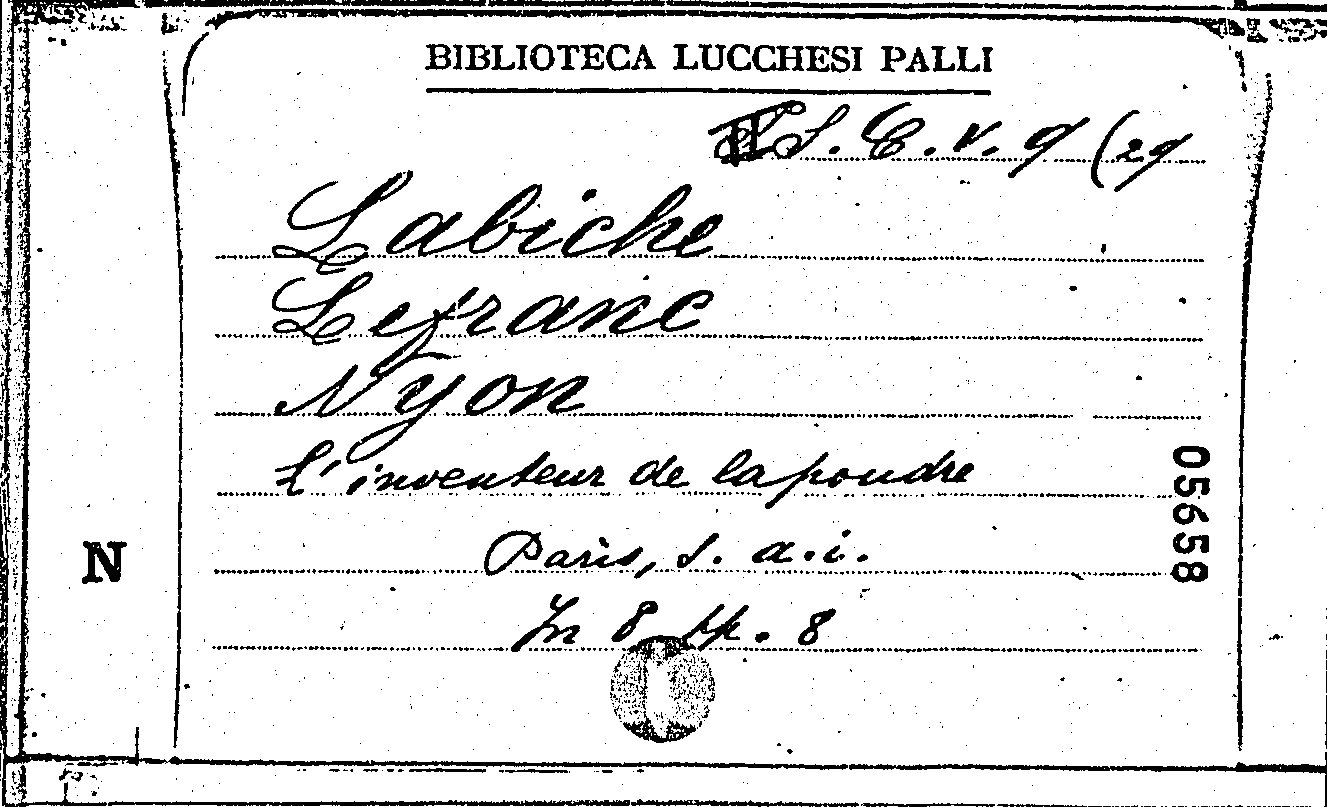 BIBLIOTECA LUCCHESI PALLI
S. C. V. 9 (29
Labiche
Lefranc
Nyon
L'inventeur de la poudre
Paris, s. a. i.
In 8 pp. 8
05658
N